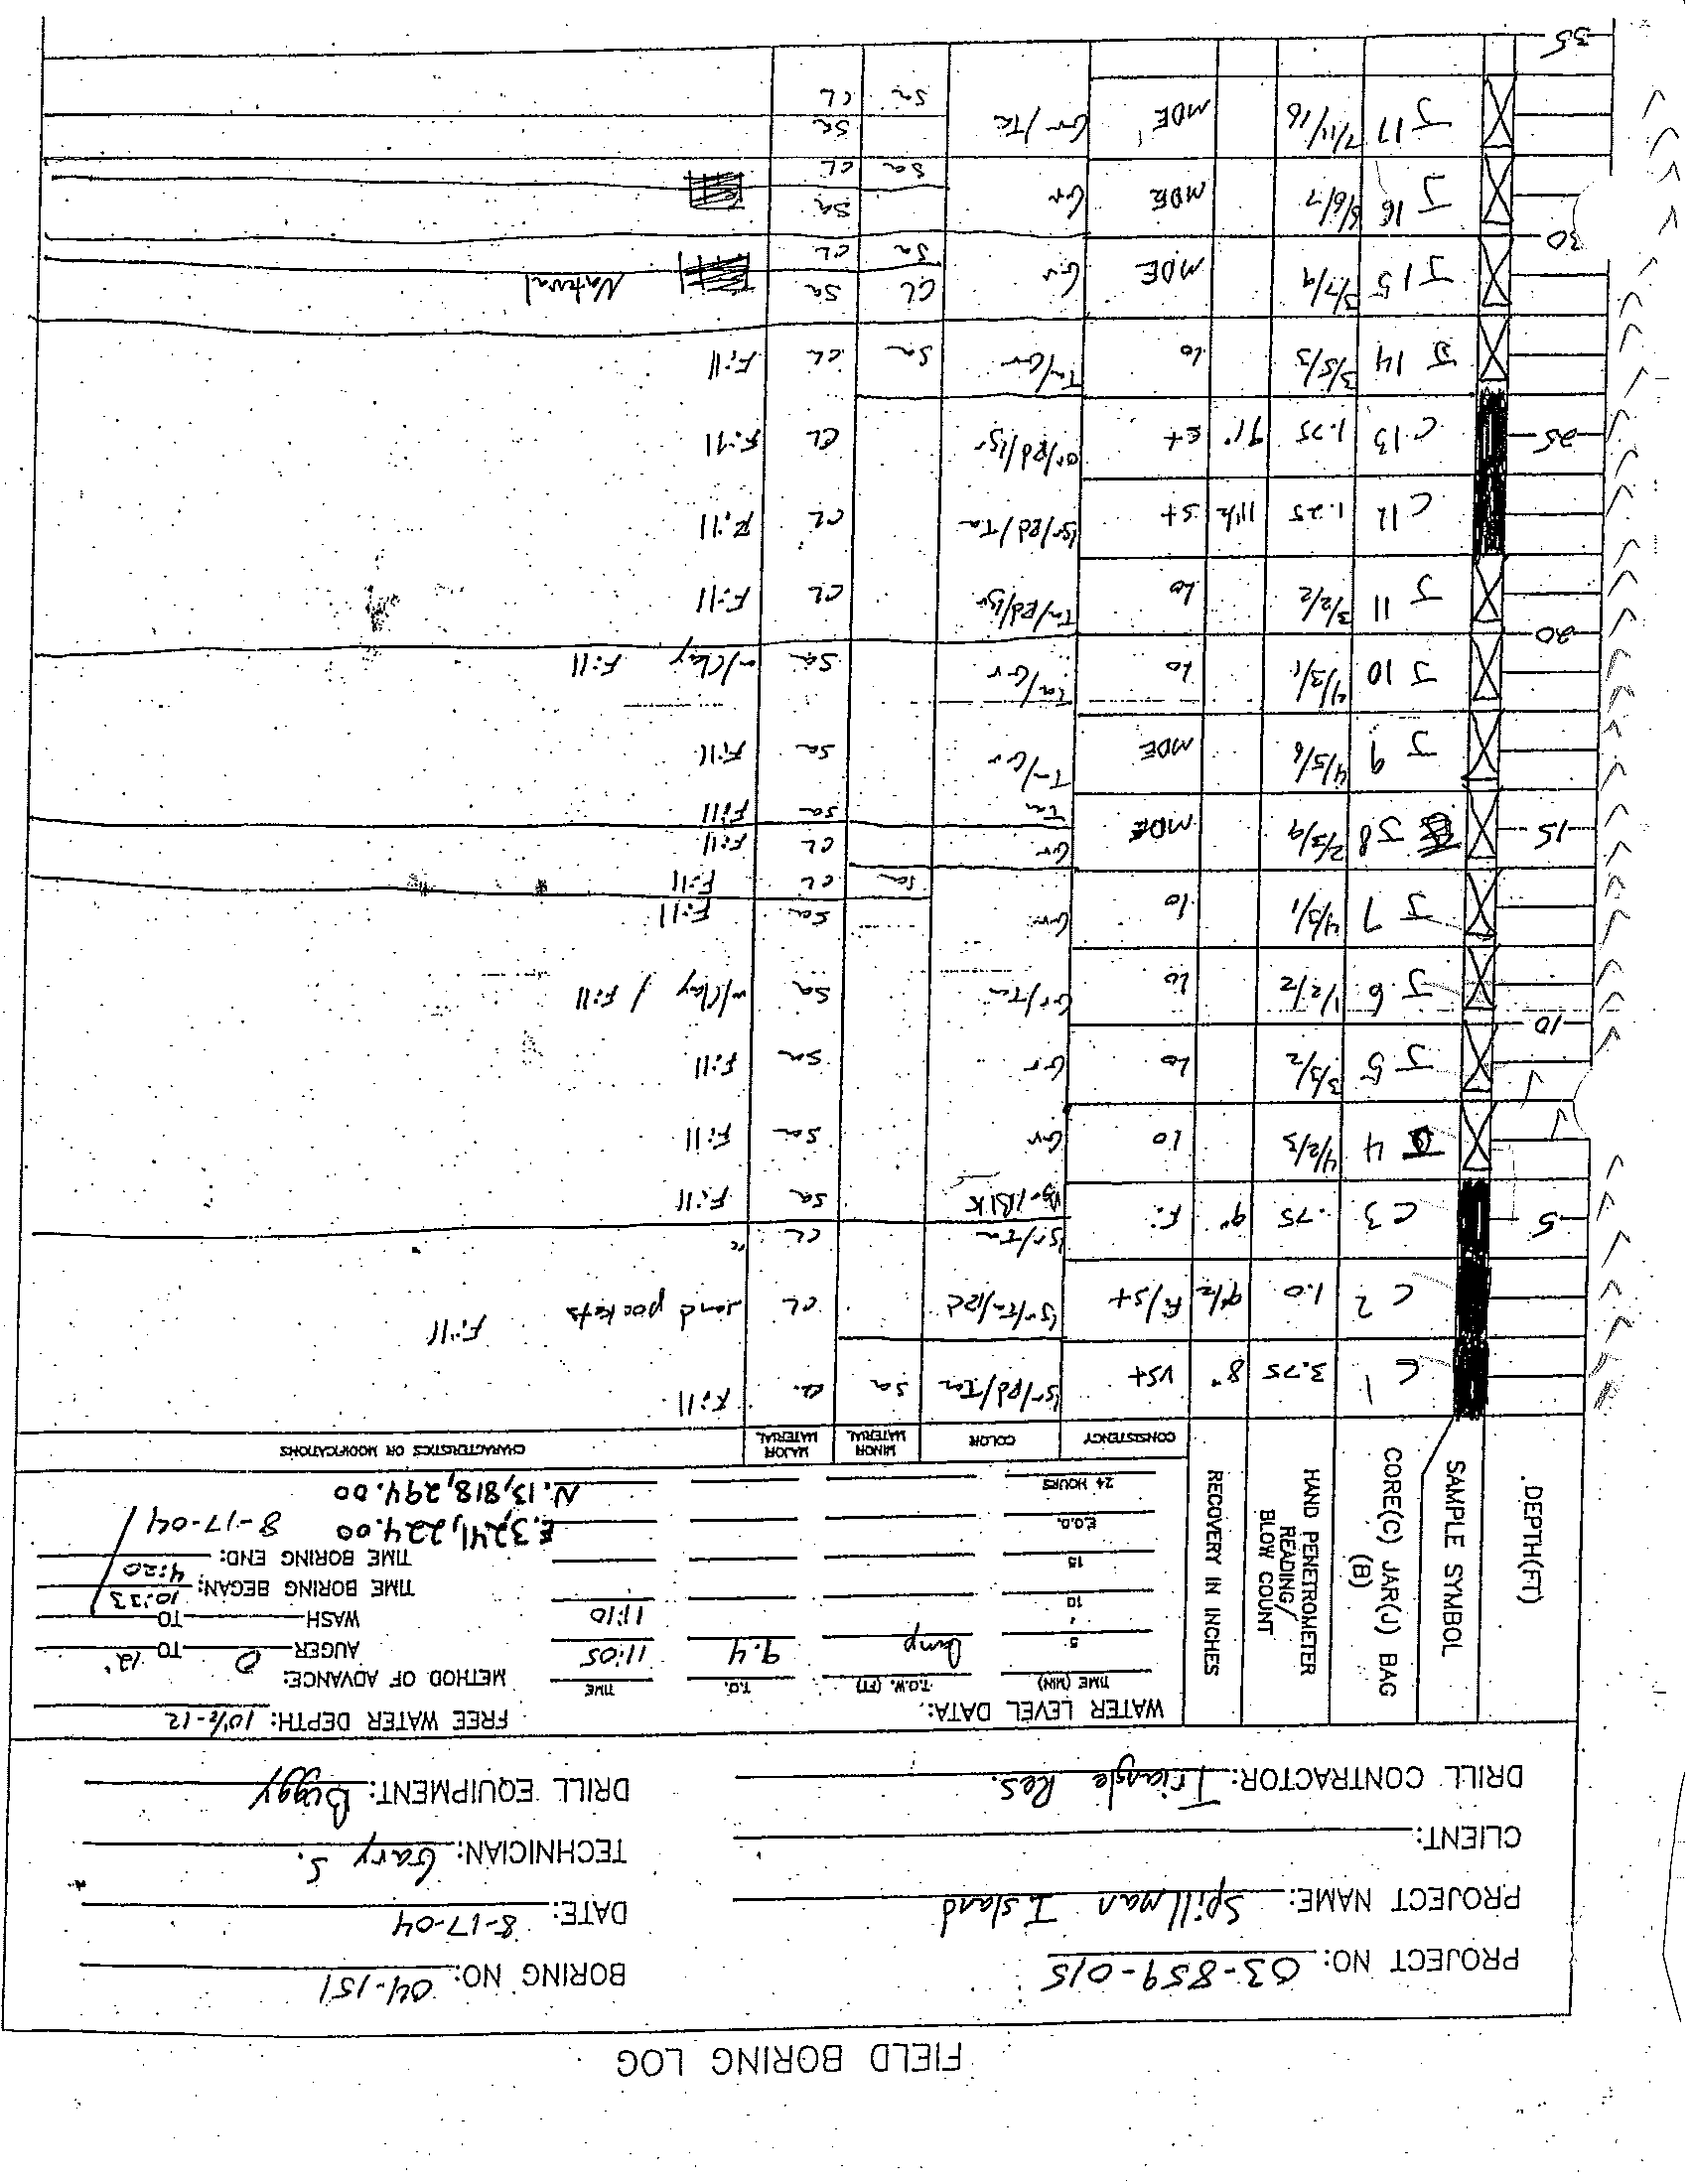 FIELD BORING LOG
PROJECT NO: 03-859-015 BORING NO: 04-151
PROJECT NAME: Spillman Island DATE: 8-17-04
CLIENT: TECHNICIAN: Gary S.
DRILL CONTRACTOR: Triangle Res. DRILL EQUIPMENT: Buggy
DEPTH(FT)
SAMPLE SYMBOL
CORE(C) JAR(J) BAG (B)
HAND PENETROMETER READING/ BLOW COUNT
RECOVERY IN INCHES
WATER LEVEL DATA: FREE WATER DEPTH: 10½-12
TIME (MIN) T.O.W. (FT) T.D. TIME METHOD OF ADVANCE:
5 Dmp 9.4 11:05 AUGER 0 TO 12'
10 11:10 WASH TO
TIME BORING BEGAN: 10:33
15 TIME BORING END: 4:20
E.O.D. E.3,241,224.00 8-17-04
24 HOURS N.13,818,294.00
CONSISTENCY COLOR MINOR MATERIAL MAJOR MATERIAL CHARACTERISTICS OR MODIFICATIONS
C 1 3.75 8" VSt lgr/Rd/Tan Sa CL Fill
C 2 1.0 9½ Fi/St lgr/Tn/Rd CL sand pockets Fill
lgr/Tan CL "
5 C 3 .75 9" Fi Dgr/Blk Sa Fill
J 4 4/2/3 Lo Gr Sa Fill
J 5 3/3/2 Lo Gr Sa Fill
10
J 6 1/2/2 Lo Gr/Tan Sa w/Clay / Fill
J 7 4/3/1 Lo Gr Sa Fill
Sa CL Fill
15 J 8 2/3/9 MDE Gr CL Fill
Tan Sa Fill
J 9 4/5/6 MDE Tn/Gr Sa Fill
J 10 4/3/1 Lo Tan/Gr Sa w/Clay Fill
20
J 11 3/2/2 Lo Tn/Rd/lgr CL Fill
C 12 1.25 11½ St lgr/Rd/Tan CL Fill
25 C 13 1.75 9½" St or/Rd/lgr CL Fill
J 14 3/5/3 Lo Tn/Gr Sa CL Fill
J 15 3/7/9 MDE Gr CL Sa Natural
Sa CL
30
J 16 6/6/7 MDE Gr Sa
Sa CL
J 17 7/11/16 MDE Gr/Tan Sa
Sa CL
35